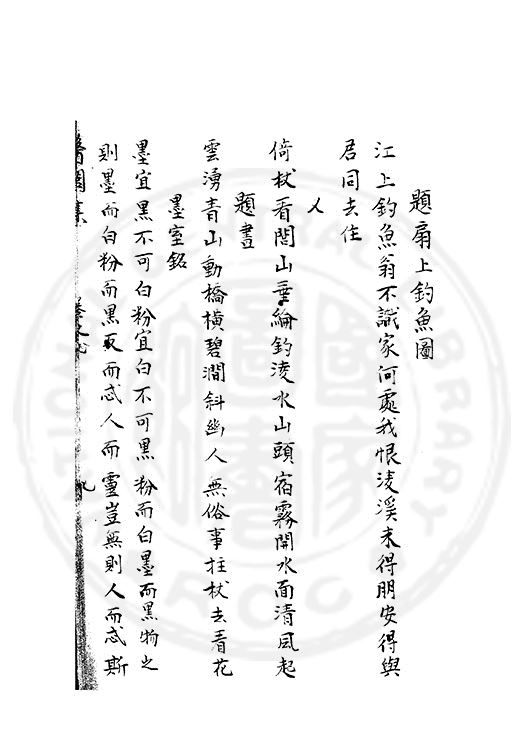 題扇上釣魚圖
江上釣魚翁不識家何處我恨淩溪未得朋安得與
君同去住
又
倚杖看閭山垂綸釣淩水山頭宿霧開水面清風起
題畫
雲湧青山動橋橫碧澗斜幽人無俗事拄杖去看花
墨室銘
墨宜黑不可白粉宜白不可黑粉而白墨而黑物之
則墨而白粉而黑反而忒人而靈豈無則人而忒斯
醫閭集
卷之
九
NATIONAL CENTRAL LIBRARY
ROC
國家圖書館